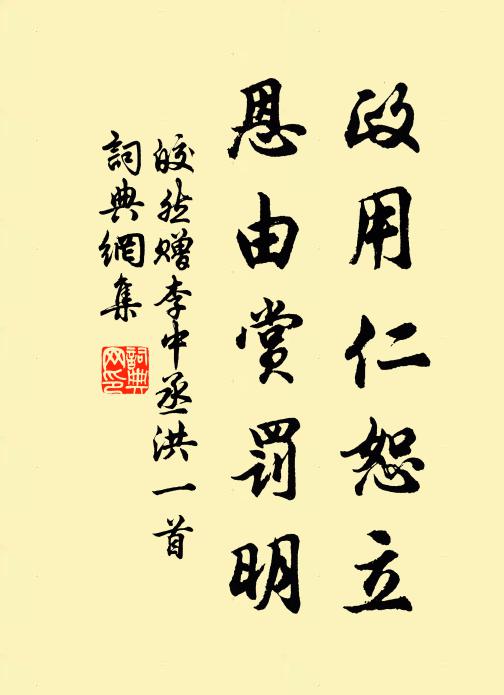 政用仁恕立
恩由賞罰明
皎然贈李中丞洪一首
詞典網集
詞典
网印